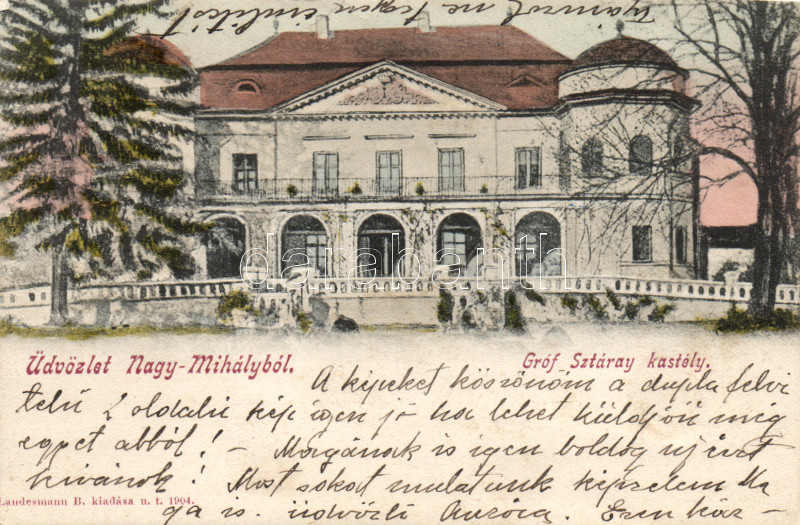 Üdvözlet Nagy-Mihályból.
Gróf Sztáray kastély.
A képeket köszönöm a dupla felvi
telü 2 oldalú kép igen jó ha lehet küldjön még
egyet abból! - Magának is igen boldog uj évet
kivánok! Most sokat mulatunk képzelem Ma
ga is. üdvözli Auróra. Ezen kár-
Landesmann B. kiadása u. t. 1904.
databanth